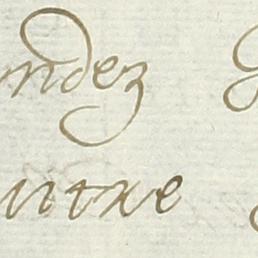 ndez
ntre